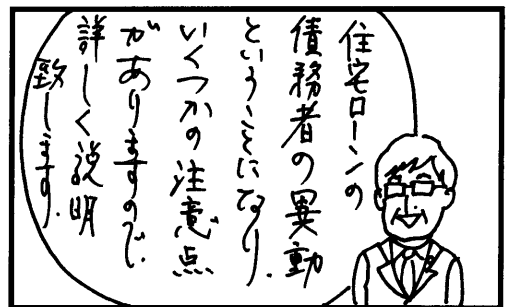 住宅ローンの
債務者の異動
ということになり、
いくつかの注意点
がありますので、
詳しく説明
致します。